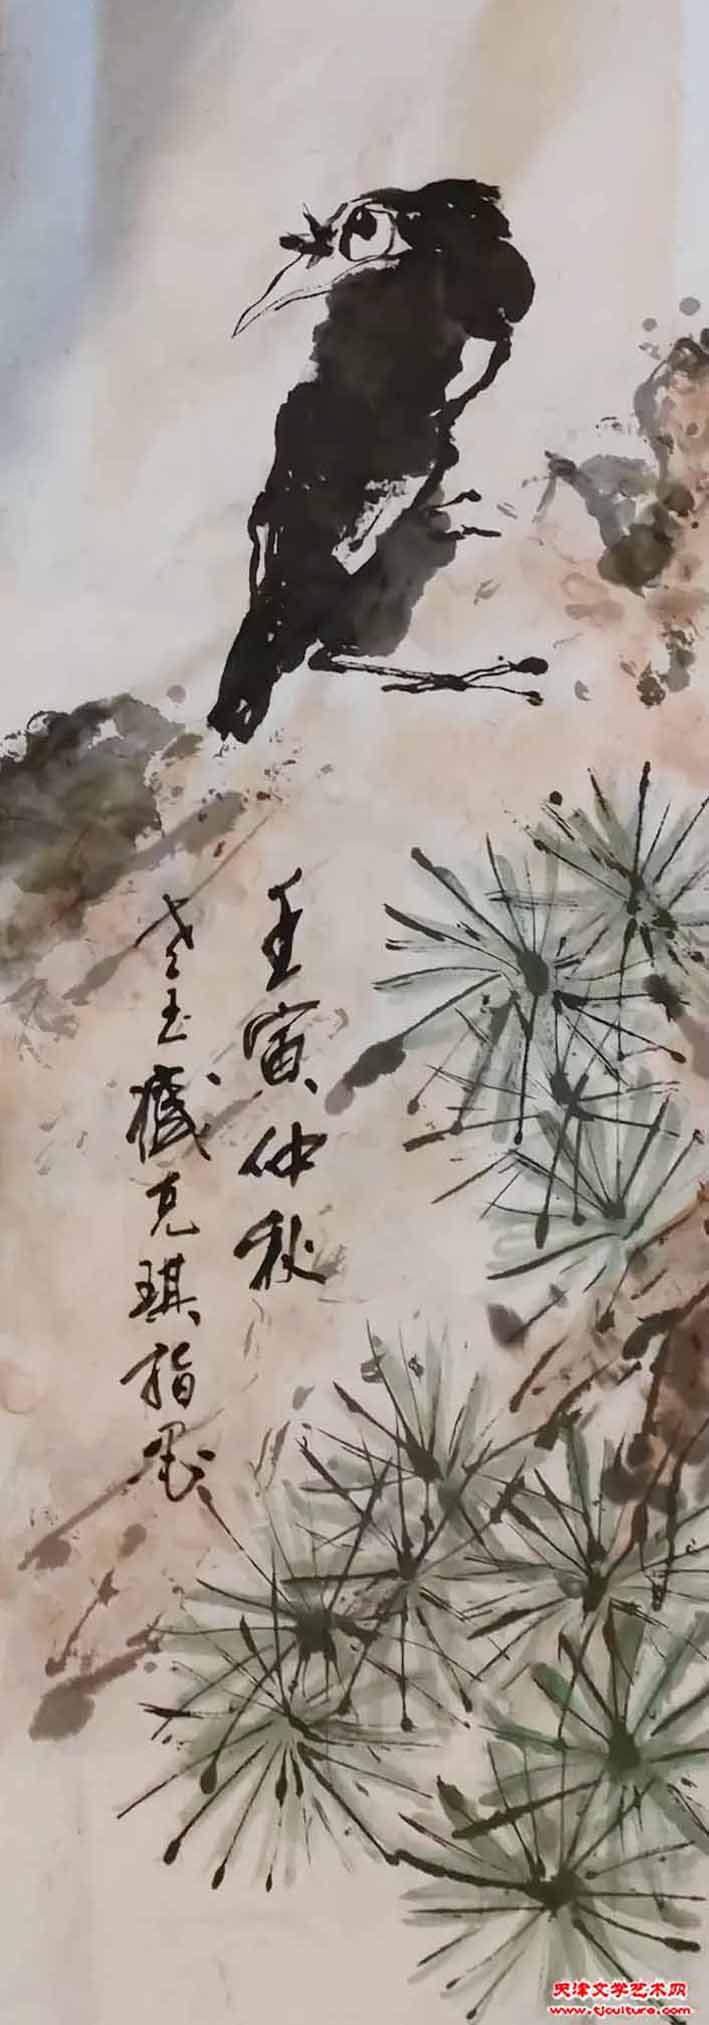 壬寅仲秋
老玉臧克琪指墨
天津文学艺术网
www.tjculture.com